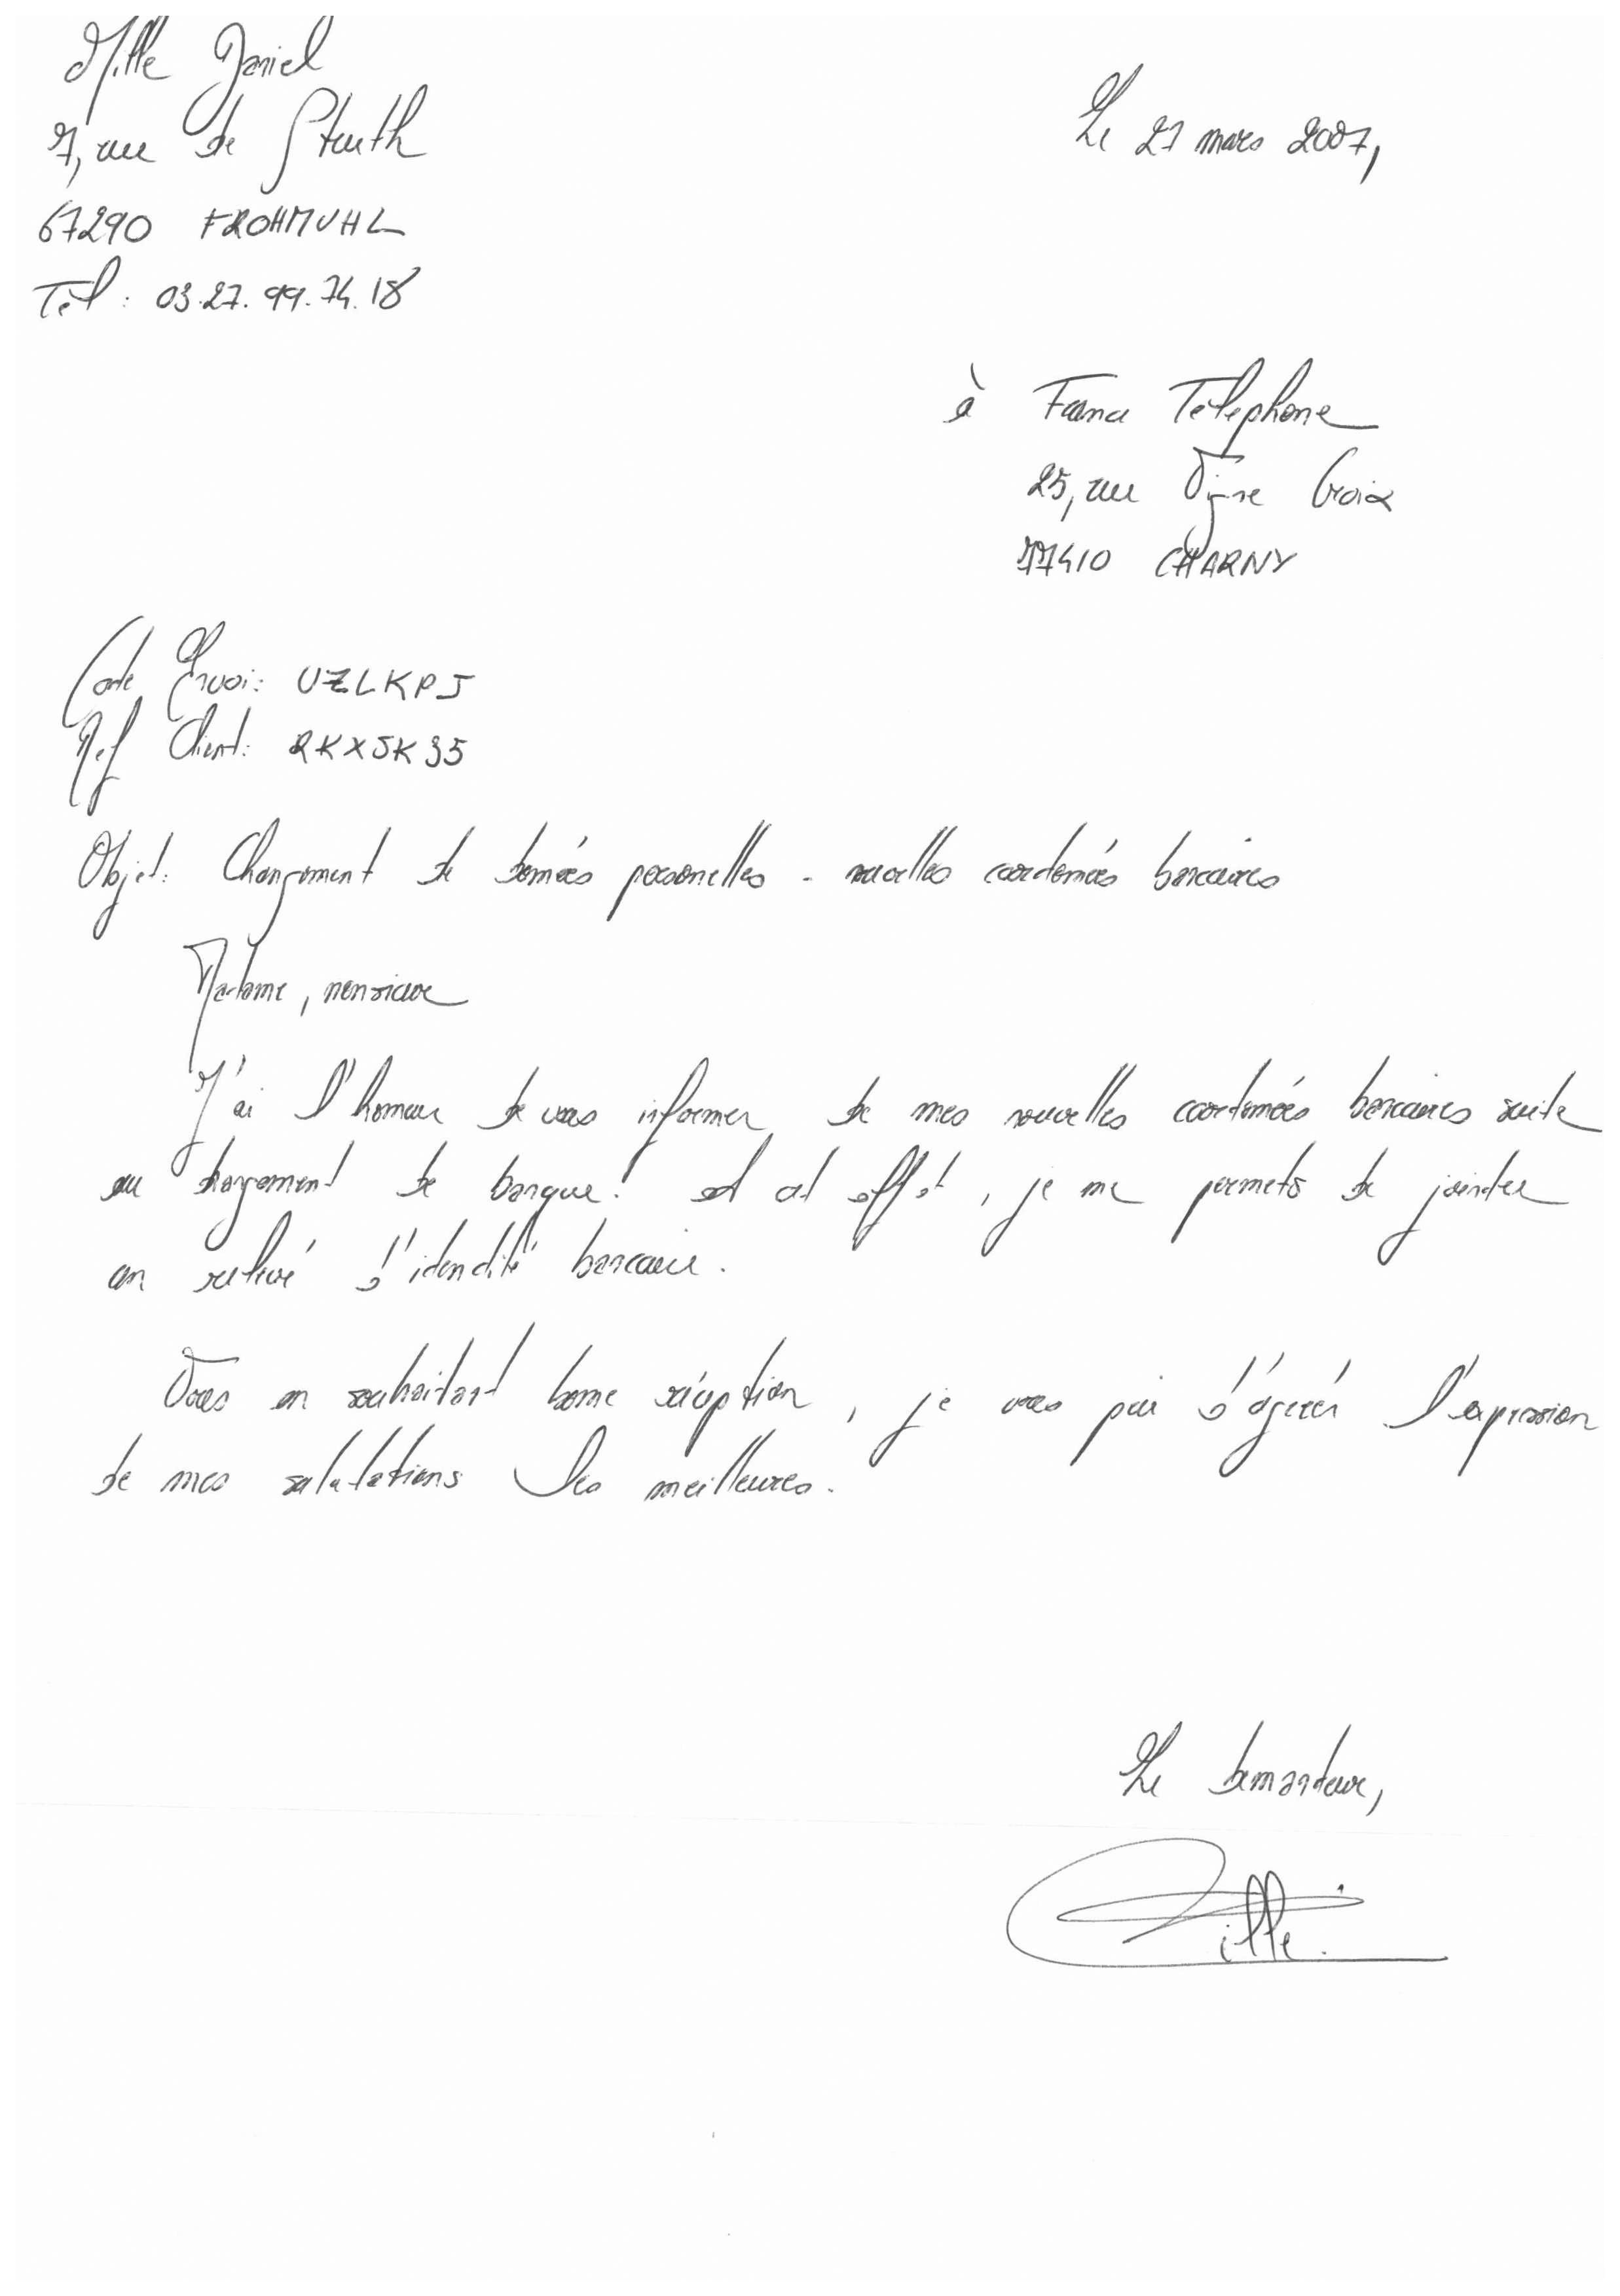 Mille Daniel
7, rue de Struth
67290 FROHMUHL
Tél : 03.27.99.74.18
Le 27 mars 2007,
à France Téléphone
25, rue Vigne Croix
77410 CHARNY
Code Envoi: UZLKPJ
Ref Client: RKXJK35
Objet: Changement de données personelles - nouvelles coordonnées bancaires
Madame, monsieur
J'ai l'honneur de vous informer de mes nouvelles coordonnées bancaires suite
au changement de banque. cet effet, je me permets de joindre
un relevé d'identité bancaire.
Vous en souhaitant bonne réception, je vous prie d'agréer l'expression
de mes salutations les meilleures.
Le demandeur,
Mille